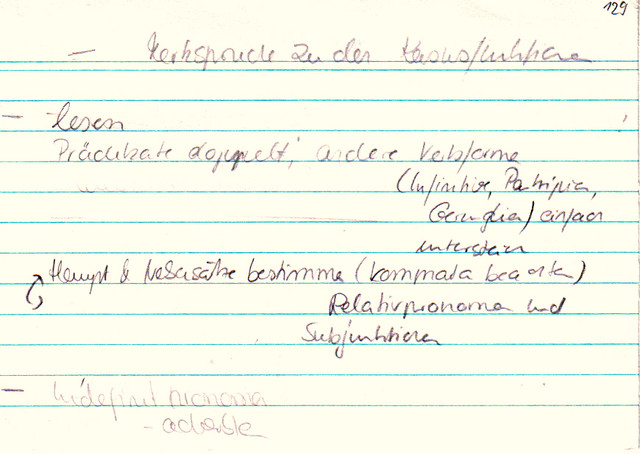 129
– Merksprüche zu den Kasusfunktionen
– lesen
Prädikate doppelt, andere Verbforme
(Infinitive, Partizipia,
Gerundia) einfach
unterstreichen
Haupt & Nebensätze bestimme (Kommata beachten)
Relativpronomen und
Subjunktionen
– Indefinitpronomen